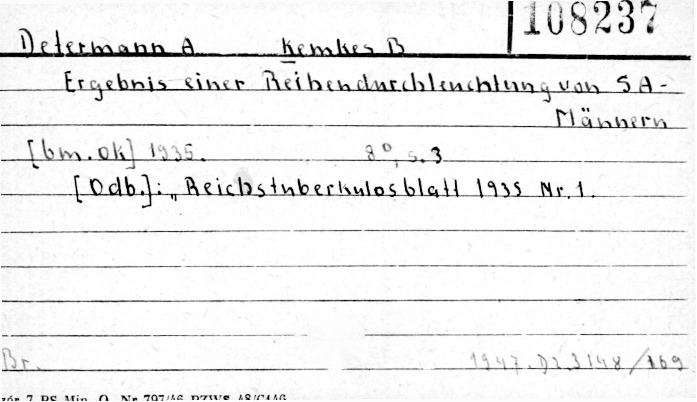 108237
Determann A. Kemkes B
Ergebnis einer Reihendurchleuchtung von SA-
Männern
[bm. ok] 1935. 8°, s. 3
[Odb.]: „Reichstuberkulosblatt 1935 Nr. 1.
Br. 1947.Dz.3148/169
7 PS Min. O. Nr 797/46 PZWS